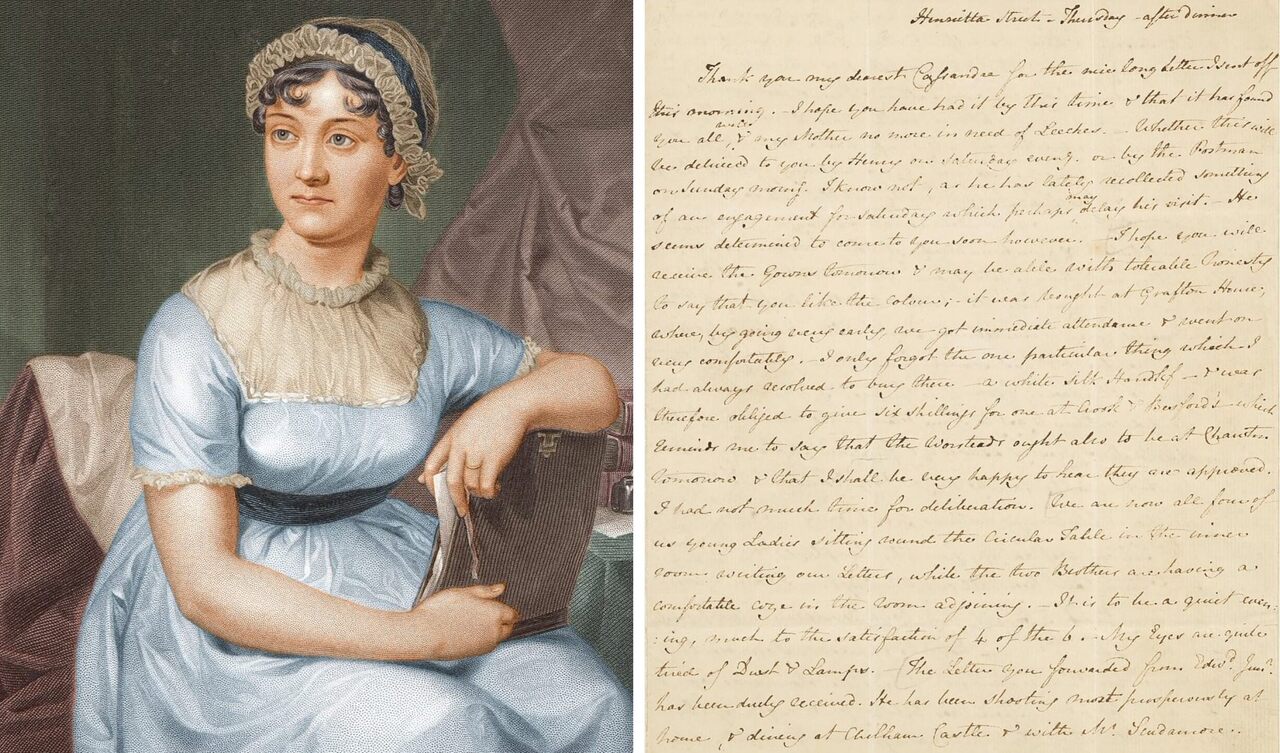 Henrietta Street - Thursday - after dinner
Thank you my dearest Cassandra for the nice long Letter I sent off
this morning. - I hope you have had it by this time & that it has found
you all well, & my Mother no more in need of Leeches. - Whether this will
be delivered to you by Henry on Saturday eveng. or by the Postman
on Sunday morng. I know not, as he has lately recollected something
of an engagement for Saturday which perhaps may delay his visit. - He
seems determined to come to you soon however. - I hope you will
receive the Gown tomorrow & may be able with tolerable honesty
to say that you like the colour; - it was bought at Grafton House,
where, by going very early, we got immediate attendance & went on
very comfortably. - I only forgot the one particular thing which I
had always resolved to buy there - a white silk Handkf - & was
therefore obliged to give six shillings for one at Crook & Besford's - which
reminds me to say that the Worsteads ought also to be at Chawton
tomorrow & that I shall be very happy to hear they are approved.
I had not much time for deliberation. We are now all four of
us young Ladies sitting round the Circular Table in the inner
room writing our Letters, while the two Brothers are having a
comfortable coze in the room adjoining. - It is to be a quiet even:
:ing, much to the satisfaction of 4 of the 6. - My Eyes are quite
tired of Dust & Lamps. - The Letter you forwarded from Edwd. Junr.
has been duly received. He has been shooting most prosperously at
home, & dining at Chilham Castle & with Mr. Scudamore. -